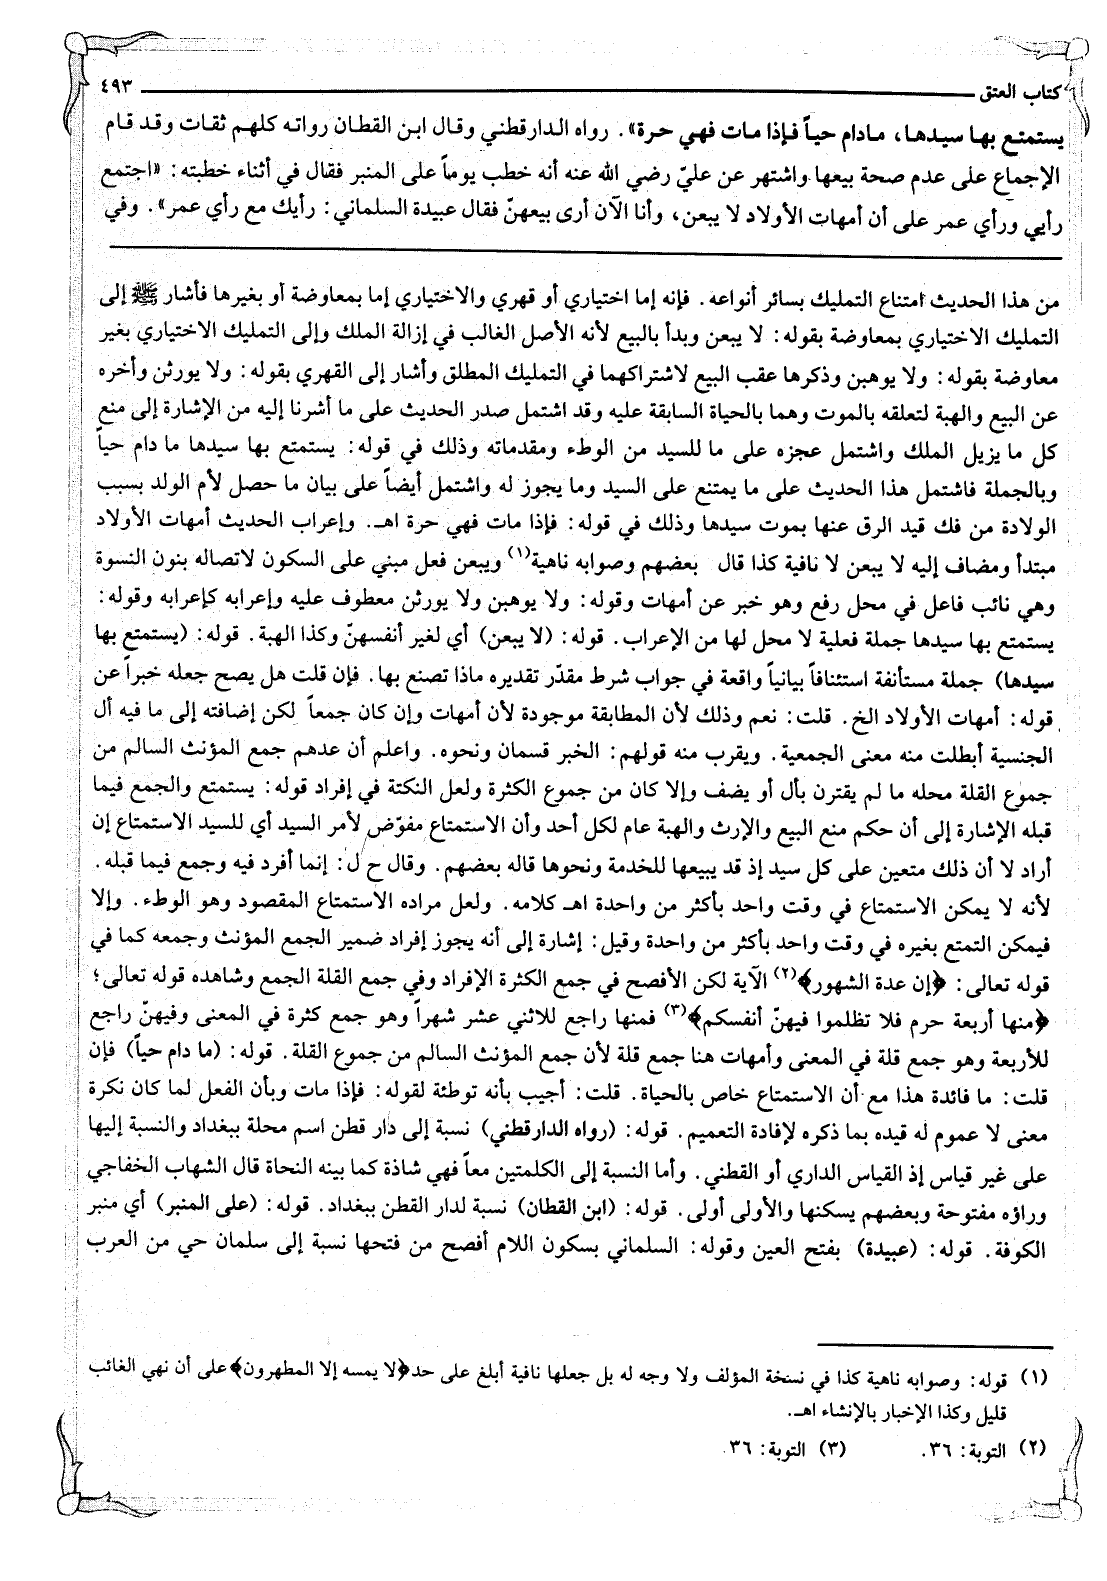 كتاب العتق ٤٩٣
يستمتع بها سيدها، مادام حياً فإذا مات فهي حرة». رواه الدارقطني وقال ابن القطان رواته كلهم ثقات وقد قام
الإجماع على عدم صحة بيعها واشتهر عن عليّ رضي الله عنه أنه خطب يوماً على المنبر فقال في أثناء خطبته: «اجتمع
رأيي ورأي عمر على أن أمهات الأولاد لا يبعن، وأنا الآن أرى بيعهنّ فقال عبيدة السلماني: رأيك مع رأي عمر». وفي
من هذا الحديث امتناع التمليك بسائر أنواعه. فإنه إما اختياري أو قهري والاختياري إما بمعاوضة أو بغيرها فأشار ﷺ إلى
التمليك الاختياري بمعاوضة بقوله: لا يبعن وبدأ بالبيع لأنه الأصل الغالب في إزالة الملك وإلى التمليك الاختياري بغير
معاوضة بقوله: ولا يوهبن وذكرها عقب البيع لاشتراكهما في التمليك المطلق وأشار إلى القهري بقوله: ولا يورثن وأخره
عن البيع والهبة لتعلقه بالموت وهما بالحياة السابقة عليه وقد اشتمل صدر الحديث على ما أشرنا إليه من الإشارة إلى منع
كل ما يزيل الملك واشتمل عجزه على ما للسيد من الوطء ومقدماته وذلك في قوله: يستمتع بها سيدها ما دام حياً
وبالجملة فاشتمل هذا الحديث على ما يمتنع على السيد وما يجوز له واشتمل أيضاً على بيان ما حصل لأم الولد بسبب
الولادة من فك قيد الرق عنها بموت سيدها وذلك في قوله: فإذا مات فهي حرة اهـ. وإعراب الحديث أمهات الأولاد
مبتدأ ومضاف إليه لا يبعن لا نافية كذا قال بعضهم وصوابه ناهية(١) ويبعن فعل مبني على السكون لاتصاله بنون النسوة
وهي نائب فاعل في محل رفع وهو خبر عن أمهات وقوله: ولا يوهبن ولا يورثن معطوف عليه وإعرابه كإعرابه وقوله:
يستمتع بها سيدها جملة فعلية لا محل لها من الإعراب. قوله: (لا يبعن) أي لغير أنفسهنّ وكذا الهبة. قوله: (يستمتع بها
سيدها) جملة مستأنفة استئنافاً بيانياً واقعة في جواب شرط مقدّر تقديره ماذا تصنع بها. فإن قلت هل يصح جعله خبراً عن
قوله: أمهات الأولاد الخ. قلت: نعم وذلك لأن المطابقة موجودة لأن أمهات وإن كان جمعاً لكن إضافته إلى ما فيه أل
الجنسية أبطلت منه معنى الجمعية. ويقرب منه قولهم: الخبر قسمان ونحوه. واعلم أن عدهم جمع المؤنث السالم من
جموع القلة محله ما لم يقترن بأل أو يضف وإلا كان من جموع الكثرة ولعل النكتة في إفراد قوله: يستمتع والجمع فيما
قبله الإشارة إلى أن حكم منع البيع والإرث والهبة عام لكل أحد وأن الاستمتاع مفوّض لأمر السيد أي للسيد الاستمتاع إن
أراد لا أن ذلك متعين على كل سيد إذ قد يبيعها للخدمة ونحوها قاله بعضهم. وقال ح ل: إنما أفرد فيه وجمع فيما قبله.
لأنه لا يمكن الاستمتاع في وقت واحد بأكثر من واحدة اهـ كلامه. ولعل مراده الاستمتاع المقصود وهو الوطء. وإلا
فيمكن التمتع بغيره في وقت واحد بأكثر من واحدة وقيل: إشارة إلى أنه يجوز إفراد ضمير الجمع المؤنث وجمعه كما في
قوله تعالى: ﴿إن عدة الشهور﴾(٢) الآية لكن الأفصح في جمع الكثرة الإفراد وفي جمع القلة الجمع وشاهده قوله تعالى؛
﴿منها أربعة حرم فلا تظلموا فيهنّ أنفسكم﴾(٣) فمنها راجع للاثني عشر شهراً وهو جمع كثرة في المعنى وفيهنّ راجع
للأربعة وهو جمع قلة في المعنى وأمهات هنا جمع قلة لأن جمع المؤنث السالم من جموع القلة. قوله: (ما دام حياً) فإن
قلت: ما فائدة هذا مع أن الاستمتاع خاص بالحياة. قلت: أجيب بأنه توطئة لقوله: فإذا مات وبأن الفعل لما كان نكرة
معنى لا عموم له قيده بما ذكره لإفادة التعميم. قوله: (رواه الدارقطني) نسبة إلى دار قطن اسم محلة ببغداد والنسبة إليها
على غير قياس إذ القياس الداري أو القطني. وأما النسبة إلى الكلمتين معاً فهي شاذة كما بينه النحاة قال الشهاب الخفاجي
وراؤه مفتوحة وبعضهم يسكنها والأولى أولى. قوله: (ابن القطان) نسبة لدار القطن ببغداد. قوله: (على المنبر) أي منبر
الكوفة. قوله: (عبيدة) بفتح العين وقوله: السلماني بسكون اللام أفصح من فتحها نسبة إلى سلمان حي من العرب
(١) قوله: وصوابه ناهية كذا في نسخة المؤلف ولا وجه له بل جعلها نافية أبلغ على حد ﴿لا يمسه إلا المطهرون﴾ على أن نهي الغائب
قليل وكذا الإخبار بالإنشاء اهـ.
(٢) التوبة: ٣٦. (٣) التوبة: ٣٦.